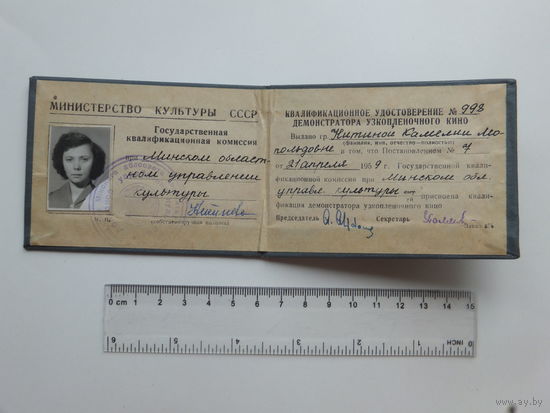 МИНИСТЕРСТВО КУЛЬТУРЫ СССР
Государственная
квалификационная комиссия
при Минском област-
ном управлении
культуры
КВАЛИФИКАЦИОННОЕ УДОСТОВЕРЕНИЕ № 998
ДЕМОНСТРАТОРА УЗКОПЛЕНОЧНОГО КИНО
Выдано гр.
(фамилия, имя, отчество—полностью)
в том, что Постановлением №
от 21 апреля 1959 г. Государственной квали-
фикационной комиссии при Минском обл
управл. культуры присвоена квали-
фикация демонстратора узкопленочного кино
Председатель Секретарь
0 cm 1 2 3 4 5 6 7 8 9 10 11 12 13 14 15
6 5 4 3 2 1 INCH 0
www.ay.by